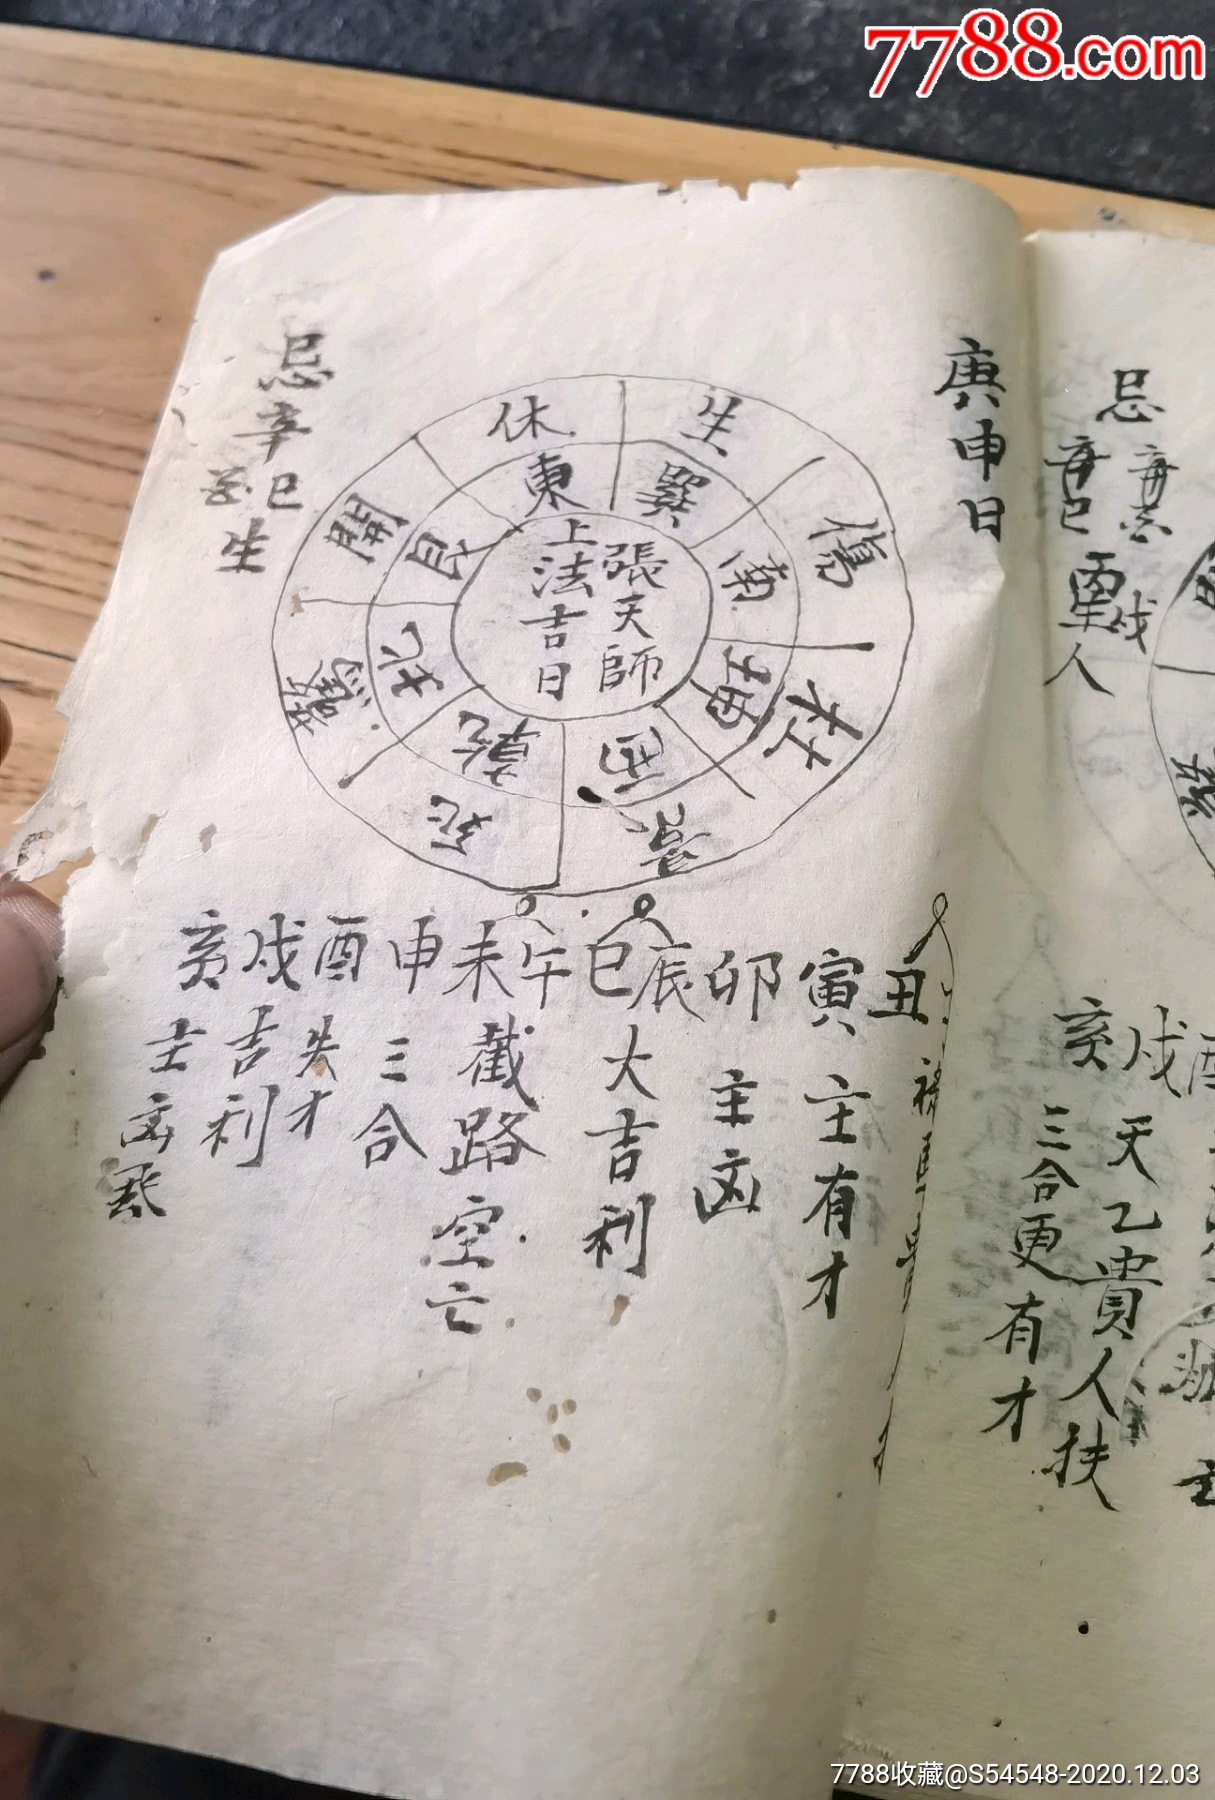 7788.com
庚申日
張天師
上法吉日
休
生
傷
杜
景
死
驚
開
東
巽
南
坤
西
乾
北
艮
忌辛巳
生
丑
寅主有才
卯主凶
辰
巳大吉利
午
未截路空亡
申三合
酉失才
戌吉利
亥主凶
忌
辛巳
人
戌天乙貴人扶
亥三合更有才
7788收藏@S54548-2020.12.03